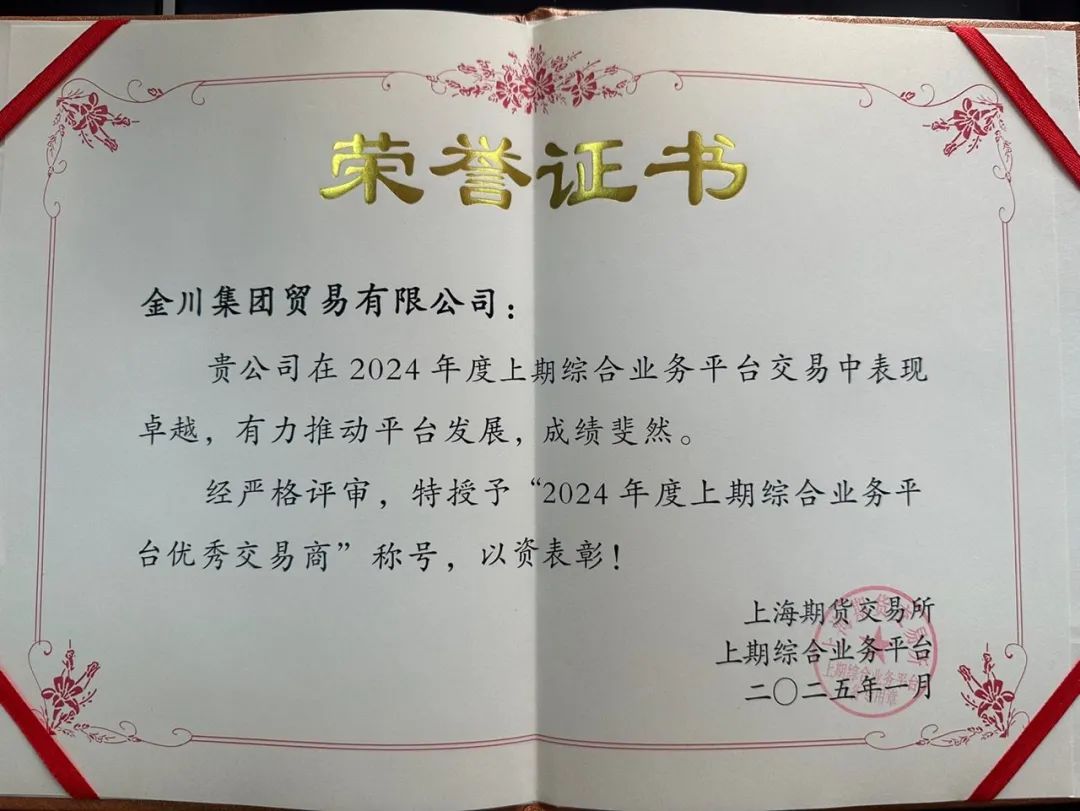 荣誉证书
金川集团贸易有限公司：
贵公司在2024年度上期综合业务平台交易中表现
卓越，有力推动平台发展，成绩斐然。
经严格评审，特授予“2024年度上期综合业务平
台优秀交易商”称号，以资表彰！
上海期货交易所
上期综合业务平台
二〇二五年一月
上海期货交易所
上期综合业务平台